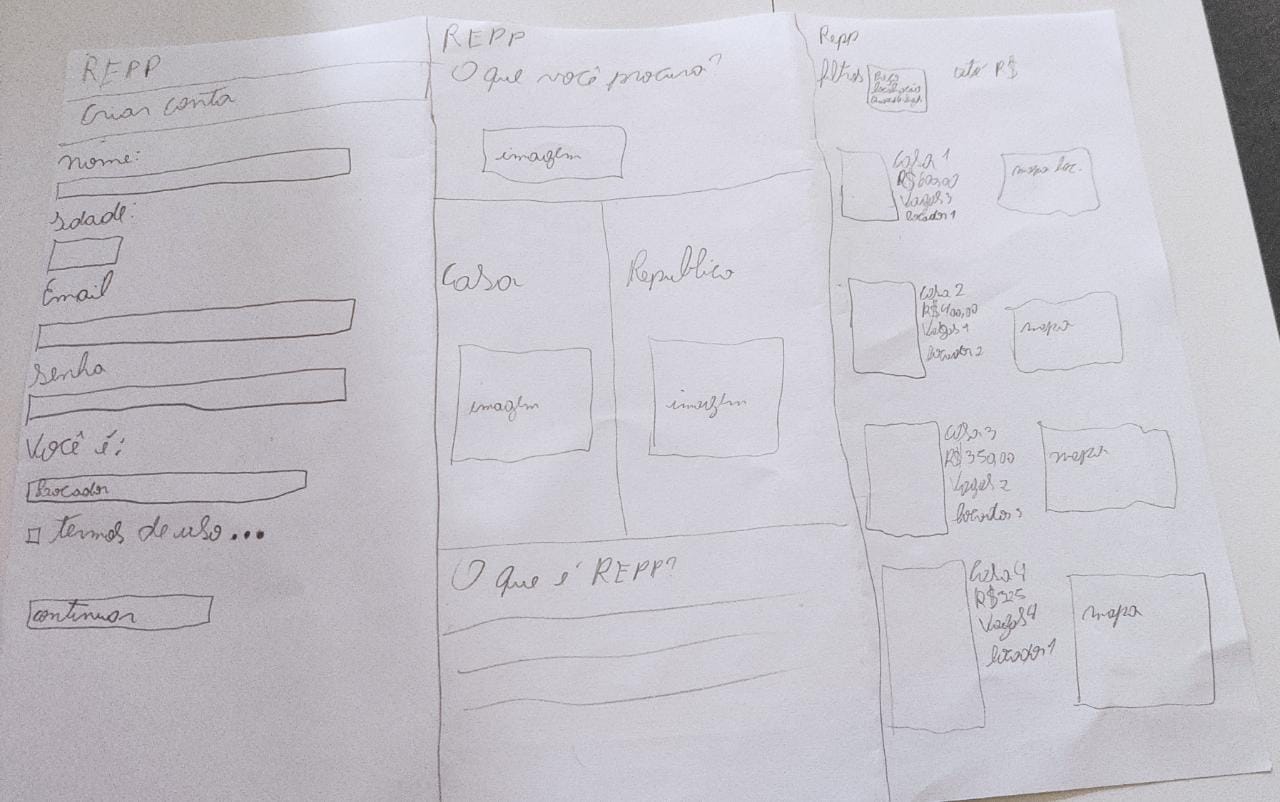 REPP
Criar conta
Nome:
Idade:
Email
Senha
Você é:
Locador
termos de uso...
continuar
REPP
O que você procura?
imagem
Casa
Republica
imagem
imagem
O que é REPP?
Repp
filtros
até R$
Casa 1
R$600,00
Vagas 3
locador 1
mapa loc.
Casa 2
R$400,00
Vagas 1
locador 2
mapa
Casa 3
R$350,00
Vagas 2
mapa
Casa 4
R$325
Vagas 4
locador 1
mapa